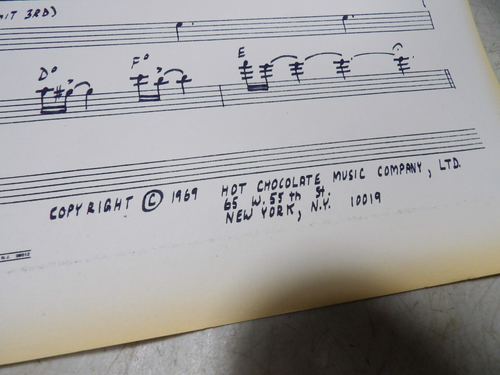 3RD)
D° F° E
COPYRIGHT © 1969 HOT CHOCOLATE MUSIC COMPANY, LTD.
65 W. 55th St.
NEW YORK, N.Y. 10019